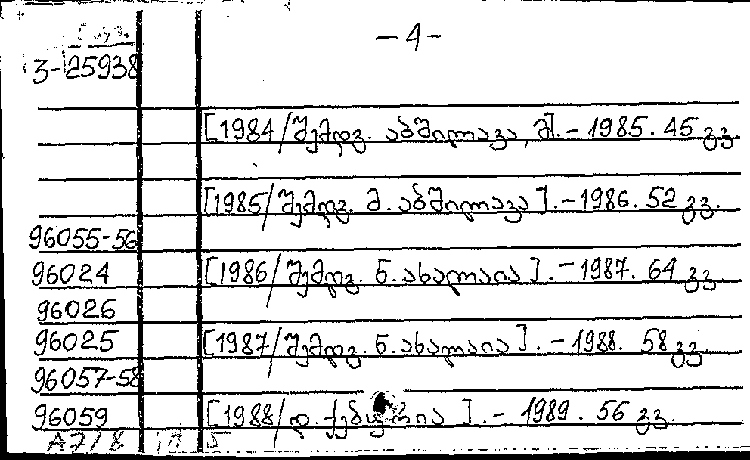 -4-
3-25938
[1984/შემდგ. აბშილავა, მ]. - 1985. 45 გვ.
[1985/შემდგ. მ. აბშილავა]. - 1986. 52 გვ.
96055-56
96024 [1986/შემდგ. ნ. ახალაია]. - 1987. 64 გვ.
96026
96025 [1987/შემდგ. ნ. ახალაია]. - 1988. 58 გვ.
96057-58
96059 [1988/დ. ]. - 1989. 56 გვ.